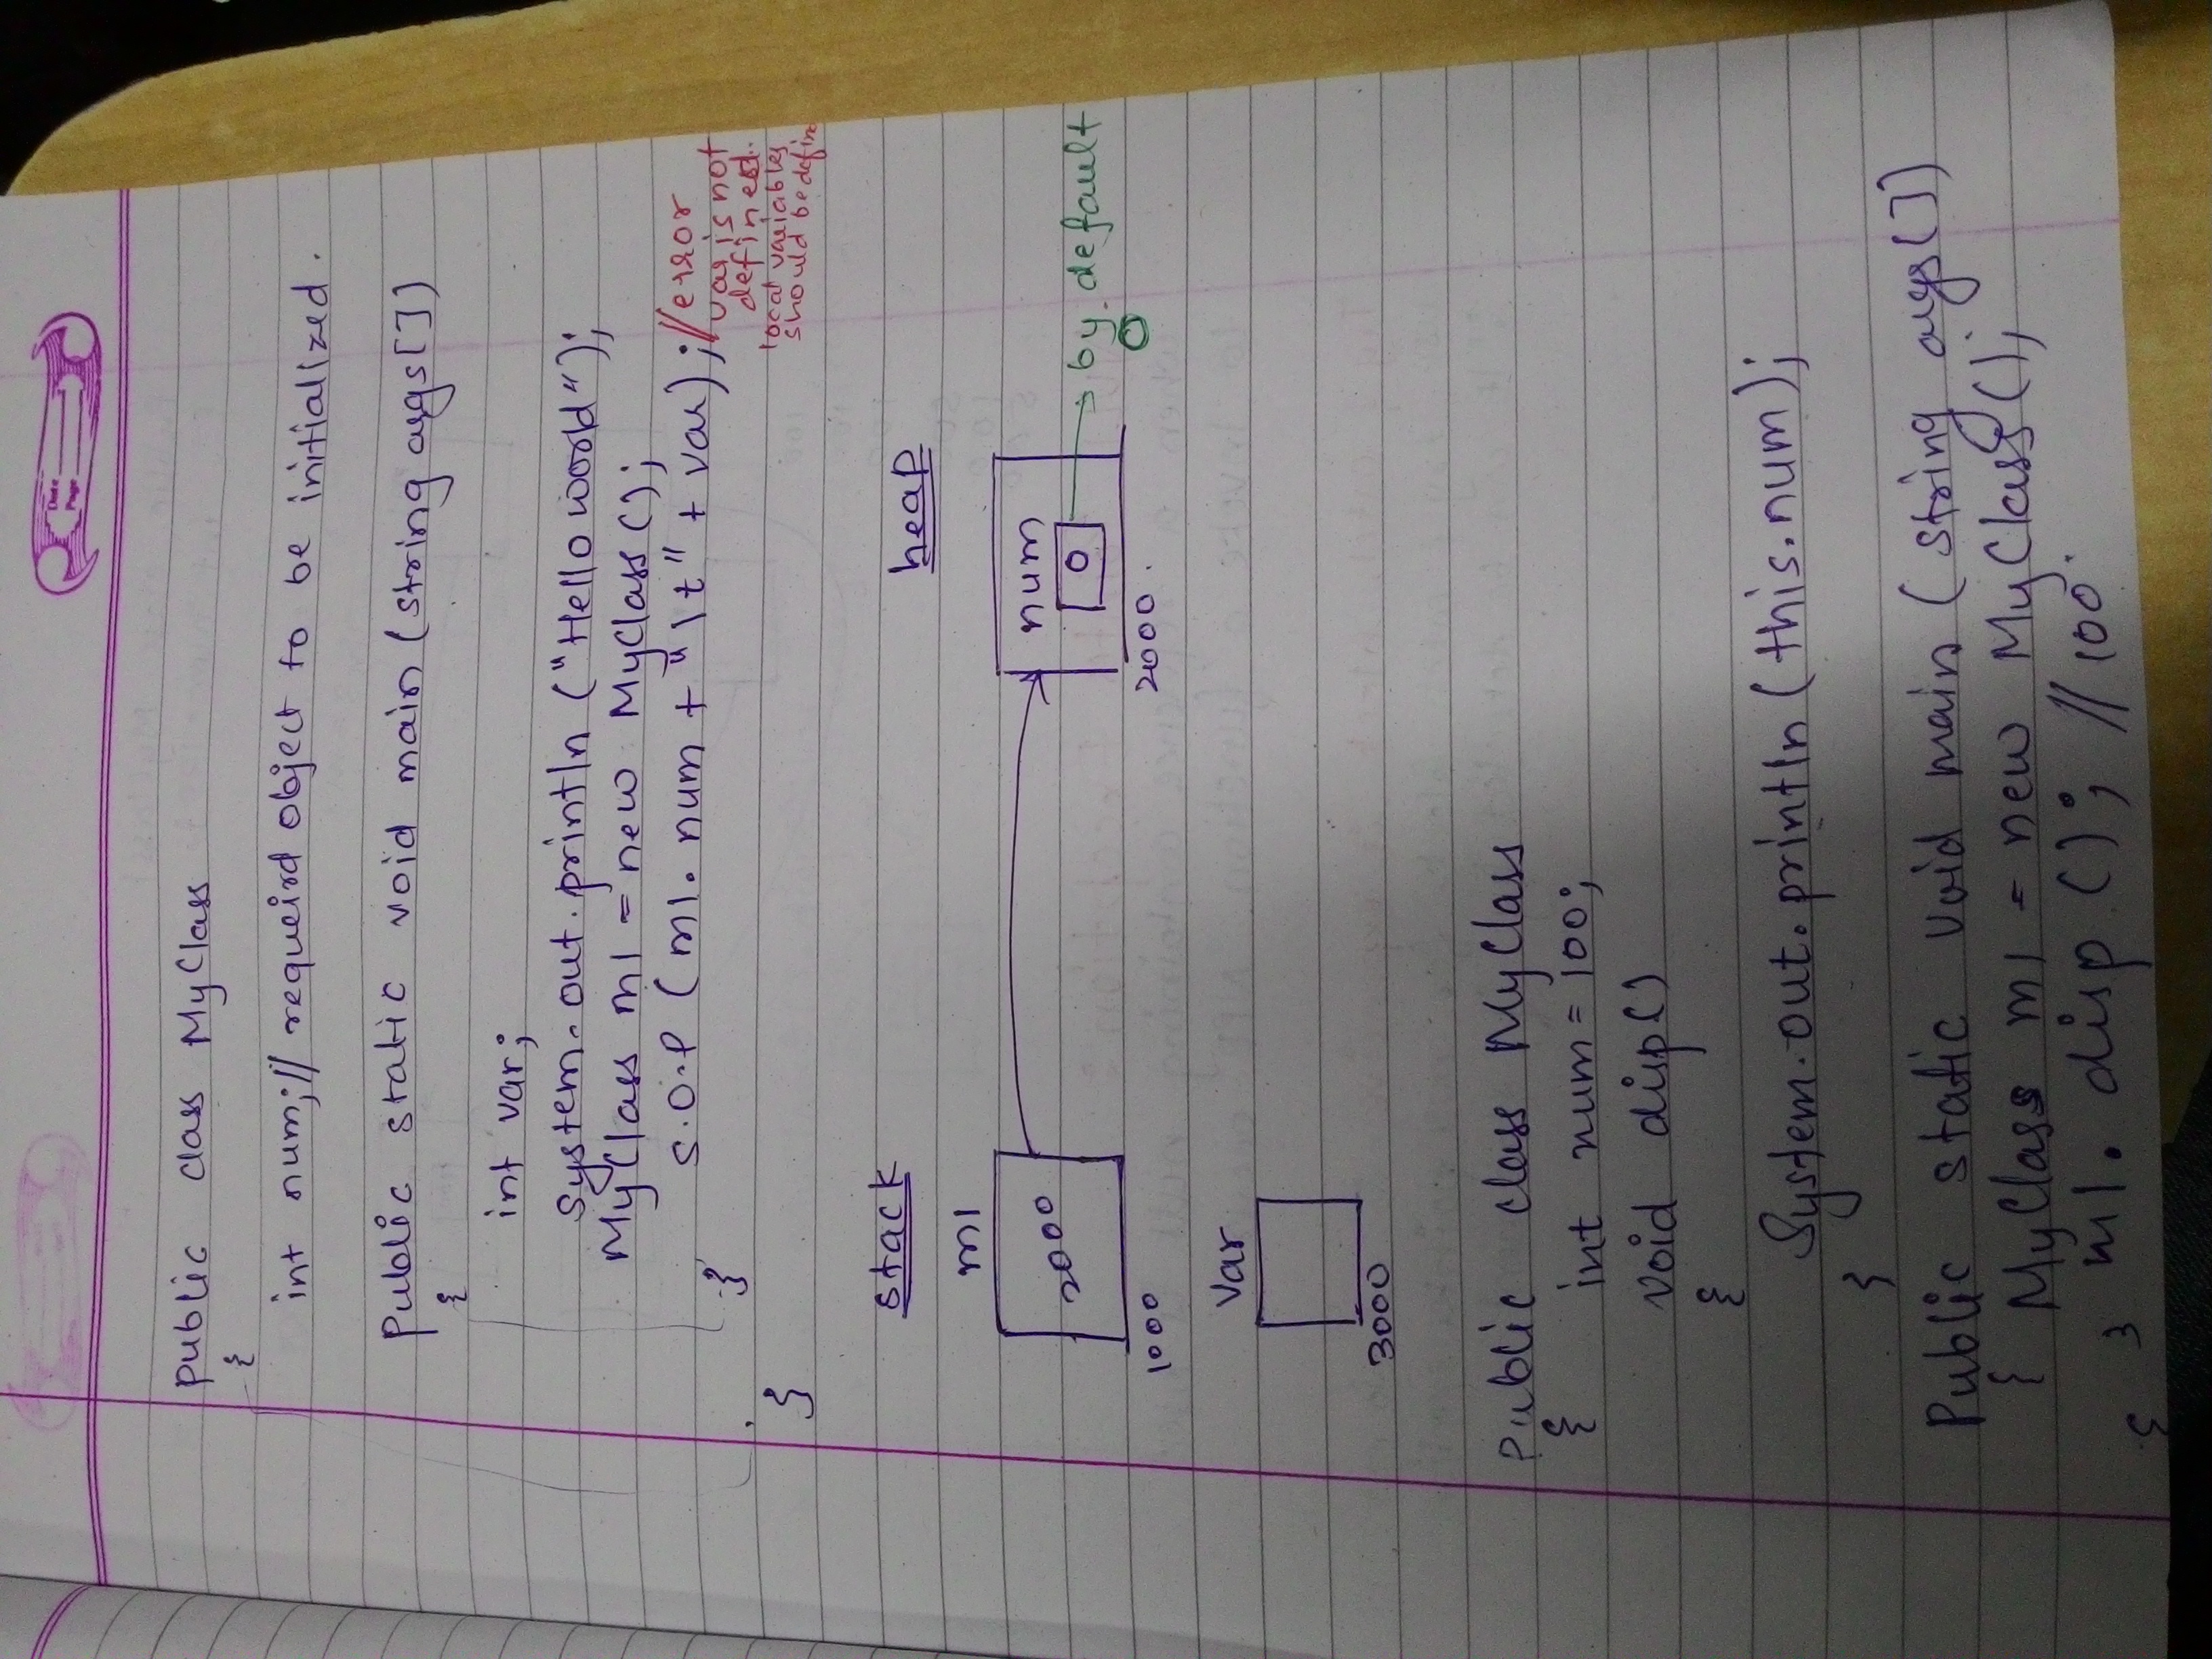 Date
Page
public class MyClass
{
int num; // requeird object to be initialized.
Public static void main (string args[])
{
int var;
system.out.println ("Hello world");
MyClass m1 = new MyClass ();
S.O.P (m1. num + "\t" + var); // error
var is not
defined.
local variables
should be defin
}
}
stack
heap
m1
2000
num
0
by default
0
1000
2000.
var
3000
Public class MyClass
{ int num = 100;
void disp()
{
System.out.println (this.num);
}
Public static void main (string args[])
{ MyClass m1 = new MyClass();
m1. disp (); // 100
}